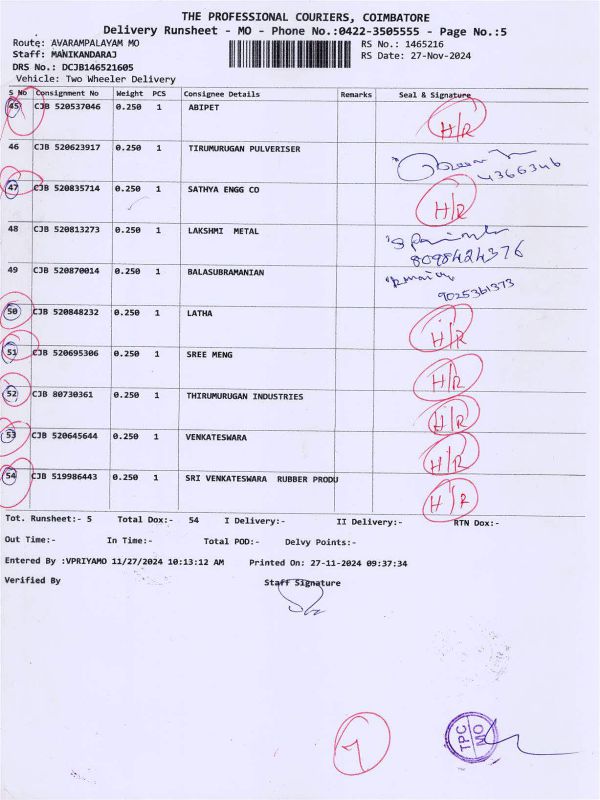 THE PROFESSIONAL COURIERS, COIMBATORE
Delivery Runsheet - MO - Phone No.:0422-3505555 - Page No.:5
Route: AVARAMPALAYAM MO RS No.: 1465216
Staff: MANIKANDARAJ RS Date: 27-Nov-2024
DRS No.: DCJB146521605
Vehicle: Two Wheeler Delivery
S No Consignment No Weight PCS Consignee Details Remarks Seal & Signature
45 CJB 520537046 0.250 1 ABIPET H/R
46 CJB 520623917 0.250 1 TIRUMURUGAN PULVERISER 4366346
47 CJB 520835714 0.250 1 SATHYA ENGG CO H/R
48 CJB 520813273 0.250 1 LAKSHMI METAL 8098424376
49 CJB 520870014 0.250 1 BALASUBRAMANIAN 9025361373
50 CJB 520848232 0.250 1 LATHA H/R
51 CJB 520695306 0.250 1 SREE MENG H/R
52 CJB 80730361 0.250 1 THIRUMURUGAN INDUSTRIES H/R
53 CJB 520645644 0.250 1 VENKATESWARA H/R
54 CJB 519986443 0.250 1 SRI VENKATESWARA RUBBER PRODU H/R
Tot. Runsheet:- 5 Total Dox:- 54 I Delivery:- II Delivery:- RTN Dox:-
Out Time:- In Time:- Total POD:- Delvy Points:-
Entered By :VPRIYAMO 11/27/2024 10:13:12 AM Printed On: 27-11-2024 09:37:34
Verified By Staff Signature
7
TPC
MO